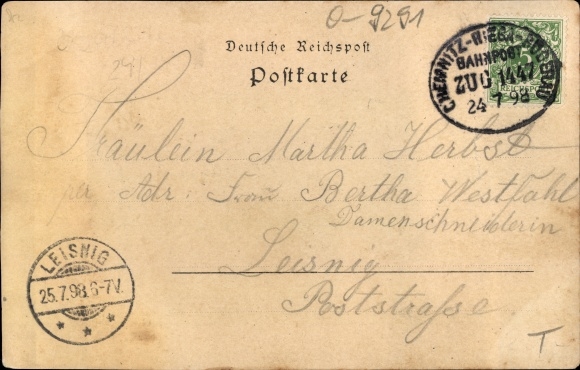 O-9291
Deutsche Reichspost
Postkarte
CHEMNITZ-RIESA-
BAHNPOST
ZUG 1447
24 7 98
REICHSPOST
Fräulein Martha Herbst
per Adr. Frau Bertha Westfahl
Damenschneiderin
Leisnig
Poststrasse
LEISNIG
25.7.98.6-7V.
T-